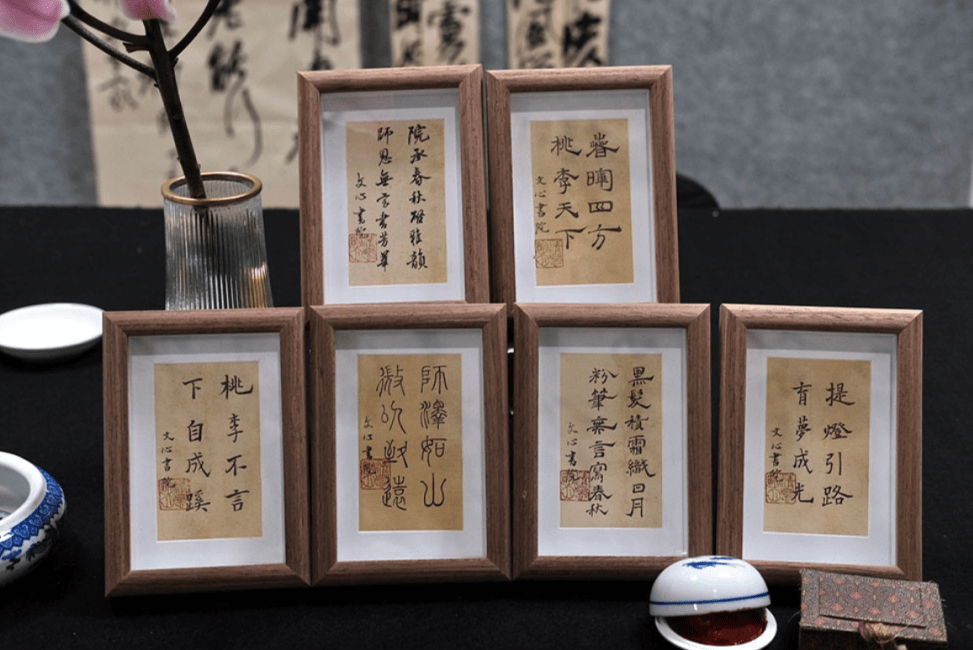 院承春秋雅韻
師恩無言書芳華
文心書院
春暉四方
桃李天下
文心書院
桃李不言
下自成蹊
文心書院
師澤如山
微以致遠
文心書院
黑髮積霜織日月
粉筆無言寫春秋
文心書院
提燈引路
育夢成光
文心書院